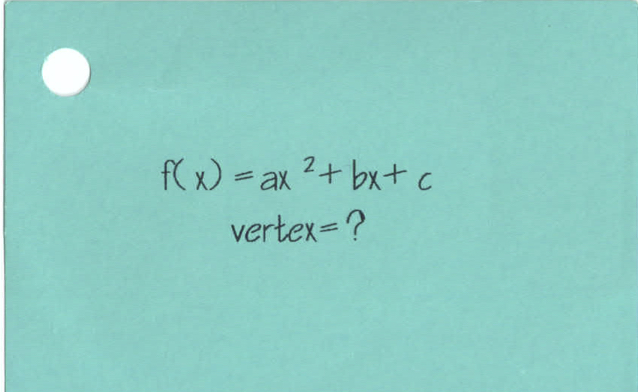 f(x) = ax² + bx + c
vertex = ?